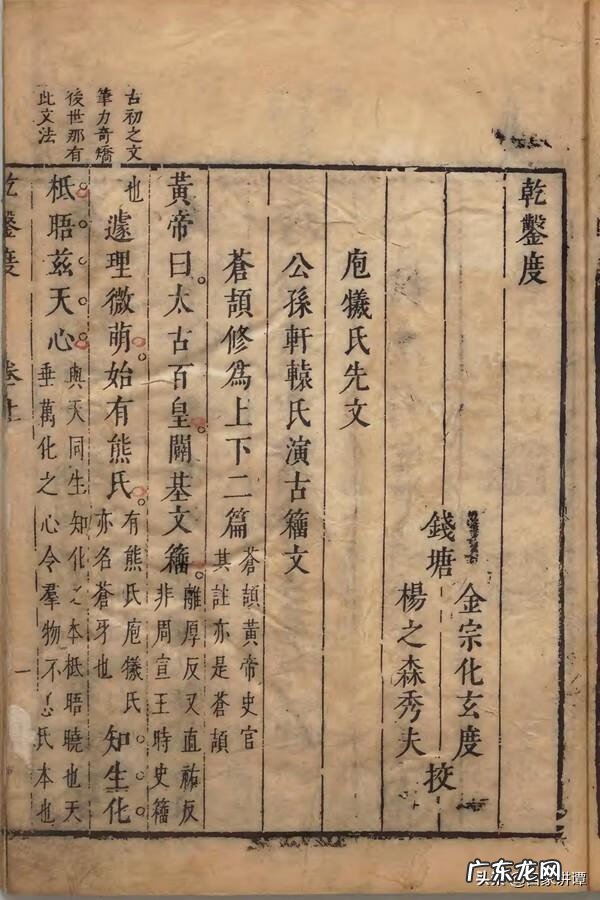 乾鑿度
金宗化玄度
錢塘
楊之森秀夫
挍
庖犧氏先文
公孫軒轅氏演古籀文
蒼頡修為上下二篇
蒼頡黃帝史官
其註亦是蒼頡
黃帝曰太古百皇闢基文籀
離厚反又直祐反
非周宣王時史籀
也
遽理微萌始有熊氏
有熊氏庖犧氏
亦名蒼牙也
知生化
柢晤茲天心
與天同生知化之本柢晤曉也天
垂萬化之心令羣物不忘氏本也
古初之文
筆力奇矯
後世那有
此文法
乾鑿度
卷上
一
广东龙网
头条 @国家讲谭